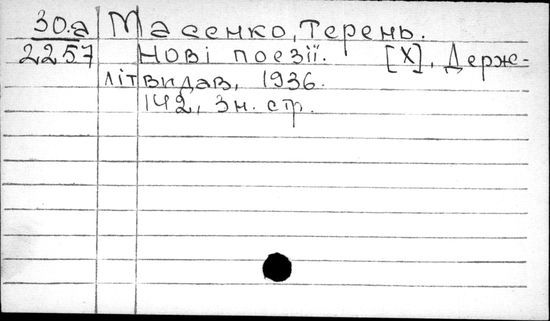 30.а Масенко, Терень.
2257 Нові поезії. [Х], Держ-
літвидав, 1936.
142, 3 н. стр.